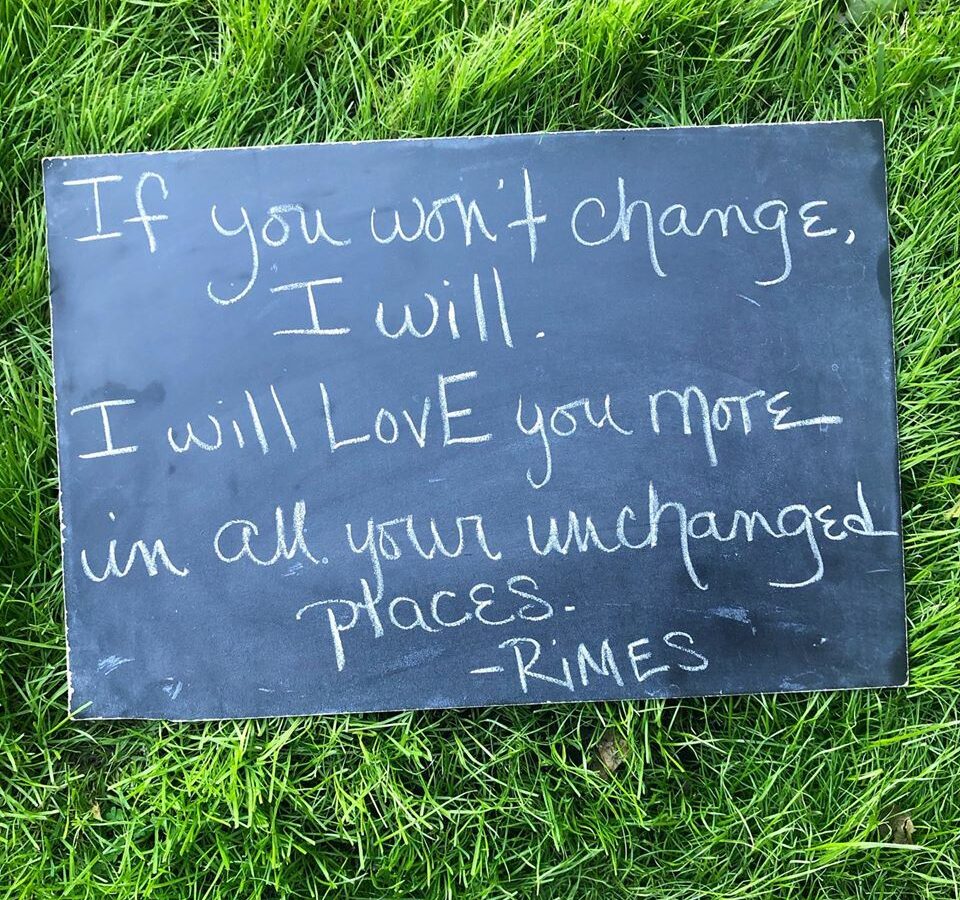 If you won't change,
I will.
I will LOVE you more
in all your unchanged
places.
-RiMES